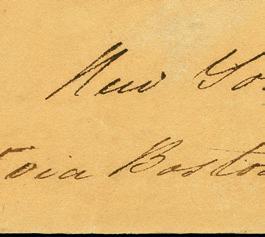 New Yo
via Bosto